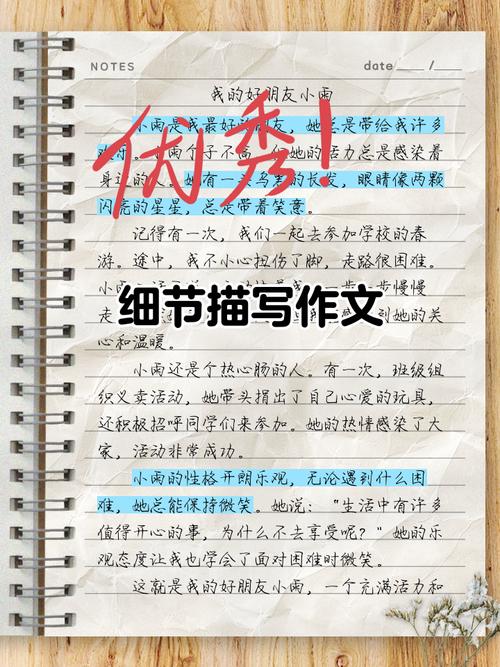 NOTES
date ___ / ___
我的好朋友小雨
小雨是我最好的朋友，她总是带给我许多
欢乐。小雨个子不高，但她的活力总是感染着
身边的人。她有一头乌黑的长发，眼睛像两颗
闪亮的星星，总是带着笑意。
优秀！
记得有一次，我们一起去参加学校的春
游。途中，我不小心扭伤了脚，走路很困难。
小雨
一步一步慢慢
细节描写作文
走
到她的关
心和温暖。
小雨还是个热心肠的人。有一次，班级组
织义卖活动，她带头捐出了自己心爱的玩具，
还积极招呼同学们来参加。她的热情感染了大
家，活动非常成功。
小雨的性格开朗乐观，无论遇到什么困
难，她总能保持微笑。她说：“生活中有许多
值得开心的事，为什么不去享受呢？”她的乐
观态度让我也学会了面对困难时微笑。
这就是我的好朋友小雨，一个充满活力和